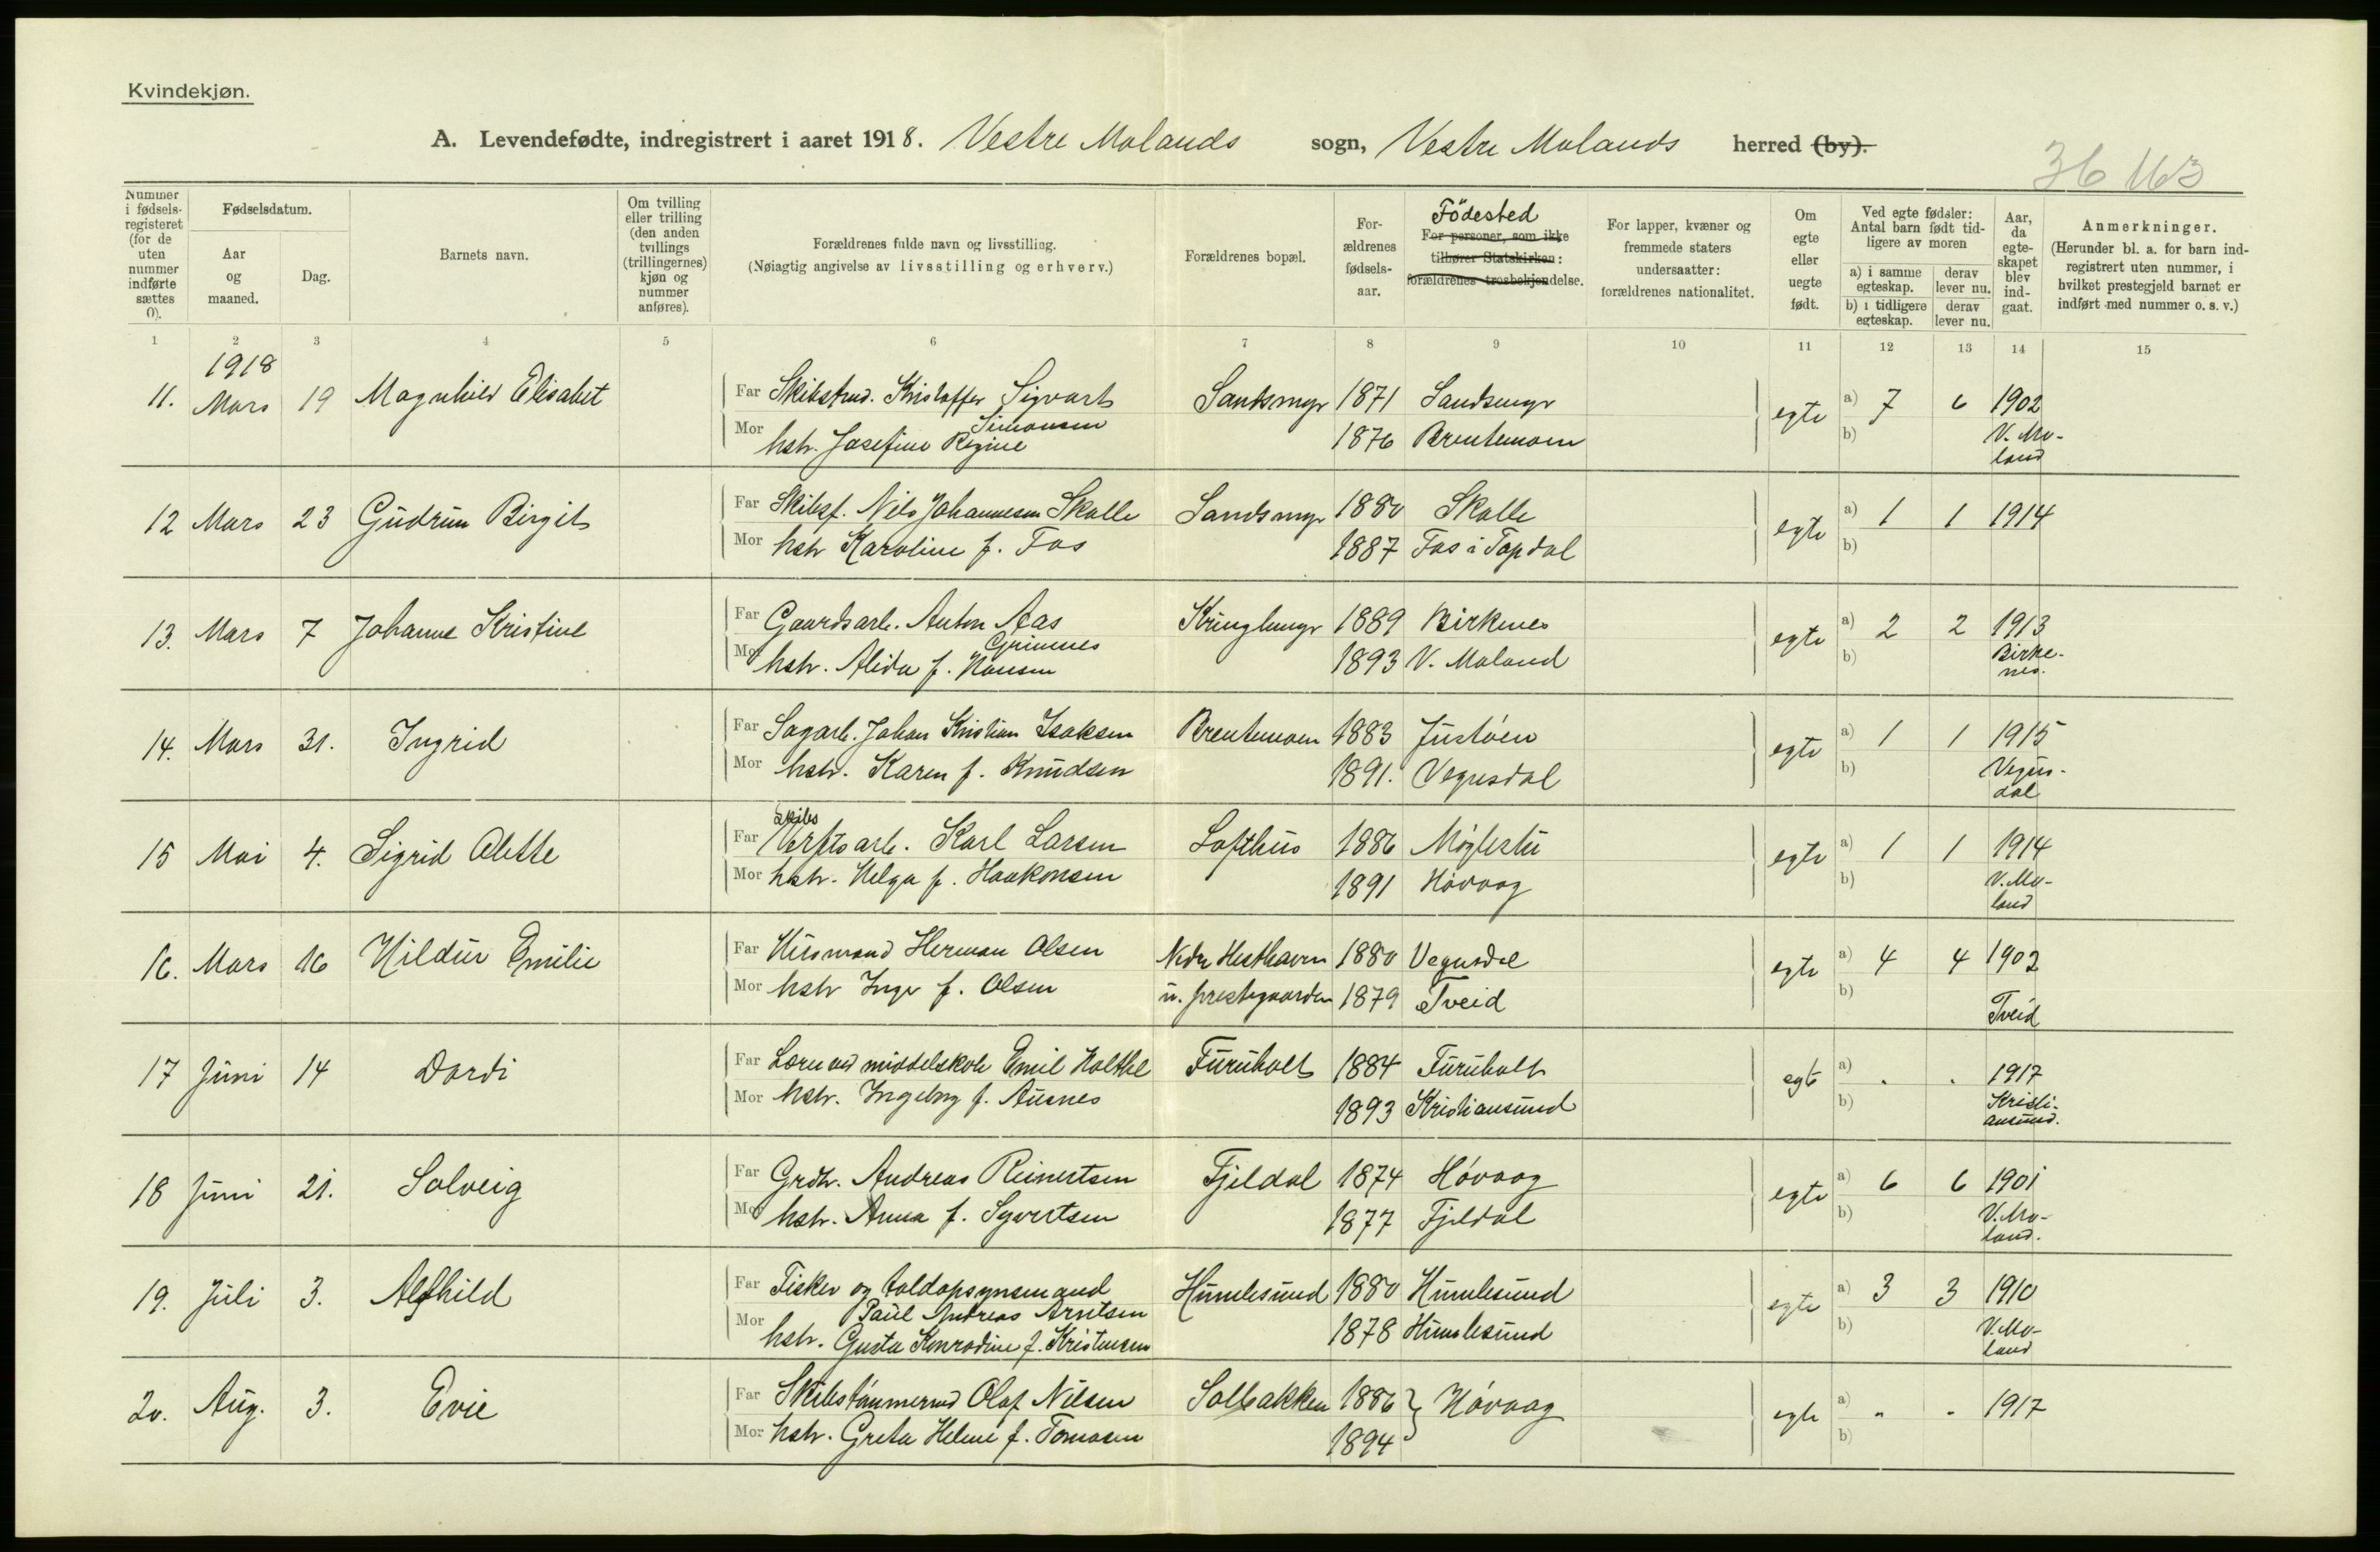 Kvindekjøn.
A. Levendefødte, indregistrert i aaret 1918. Vestre Molands sogn, Vestre Molands herred (by).
36 163
Nummer i fødsels-registeret (for de uten nummer indførte sættes 0).
Fødselsdatum.
Aar og maaned.
Dag.
Barnets navn.
Om tvilling eller trilling (den anden tvillings (trillingernes) kjøn og nummer anføres).
Forældrenes fulde navn og livsstilling.
(Nøiagtig angivelse av livsstilling og erhverv.)
Forældrenes bopæl.
For-ældrenes fødsels-aar.
Födested
For personer, som ikke tilhører Statskirken: forældrenes trosbekjendelse.
For lapper, kvæner og fremmede staters undersaatter: forældrenes nationalitet.
Om egte eller uegte født.
Ved egte fødsler: Antal barn født tid-ligere av moren
a) i samme egteskap. derav lever nu.
b) i tidligere egteskap. derav lever nu.
Aar, da egte-skapet blev ind-gaat.
Anmerkninger.
(Herunder bl. a. for barn ind-registrert uten nummer, i hvilket prestegjeld barnet er indført med nummer o. s. v.)
1 2 3 4 5 6 7 8 9 10 11 12 13 14 15
1918
11. Mars 19 Magnhild Elisabet Far Skibstmd. Kristoffer Sigvart Sandsmyr 1871 Sandsmyr egte a) 7 6 1902
Simonsen
Mor hstr. Josefine Regine 1876 Brentemoen b) V. Mo-
land
12 Mars 23 Gudrun Birgit Far Skibsf. Nils Johannesen Skalle Sandsmyr 1880 Skalle egte a) 1 1 1914
Mor hstr Karoline f. Fos 1887 Fos i Topdal b)
13. Mars 7 Johanne Kristine Far Gaardsarb. Anton Aas Kringlemyr 1889 Birkenes egte a) 2 2 1913
Grimnes
Mor hstr. Alida f. Hansen 1893 V. Moland b) Birke-
nes.
14. Mars 31. Ingrid Far Sagarb. Johan Kristian Isaksen Brentemoen 1883 Justöen egte a) 1 1 1915
Mor hstr. Karen f. Knudsen 1891. Vegusdal b) Vegus-
dal
skibs
15 Mai 4. Sigrid Alette Far Verftsarb. Karl Larsen Lofthus 1886 Møglestu egte a) 1 1 1914
Mor hstr. Helga f. Haakonsen 1891 Hövaag b) V. Mo-
land
16. Mars 16 Hildur Emilie Far Husmand Herman Olsen Nedre Hesthaven 1880 Vegusdal egte a) 4 4 1902
Mor hstr Inga f. Olsen u. prestegaarden 1879 Tveid b) Tveid
17 Juni 14 Dordi Far Lærer ved middelskole Emil Holthe Furuholt 1884 Furuholt egte a) . . 1917
Mor hstr. Ingeborg f. Ausnes 1893 Kristiansund b) Kristi-
ansund.
18 Juni 21. Solveig Far Grdbr. Andreas Reinertsen Fjeldal 1874 Hövaag egte a) 6 6 1901
Mor hstr. Anna f. Syvertsen 1877 Fjeldal b) V. Mo-
land.
19. Juli 3. Alfhild Far Fisker og toldopsynsmand Humlesund 1880 Humlesund egte a) 3 3 1910
Mor Paul Andreas Arntsen
hstr. Gusta Konradine f. Kristensen 1878 Humlesund b) V. Mo-
land
20. Aug. 3. Evie Far Skibstömmermd Olaf Nilsen Solbakken 1886 } Hövaag egte a) " " 1917
Mor hstr. Greta Helene f. Tomasen 1894 b)